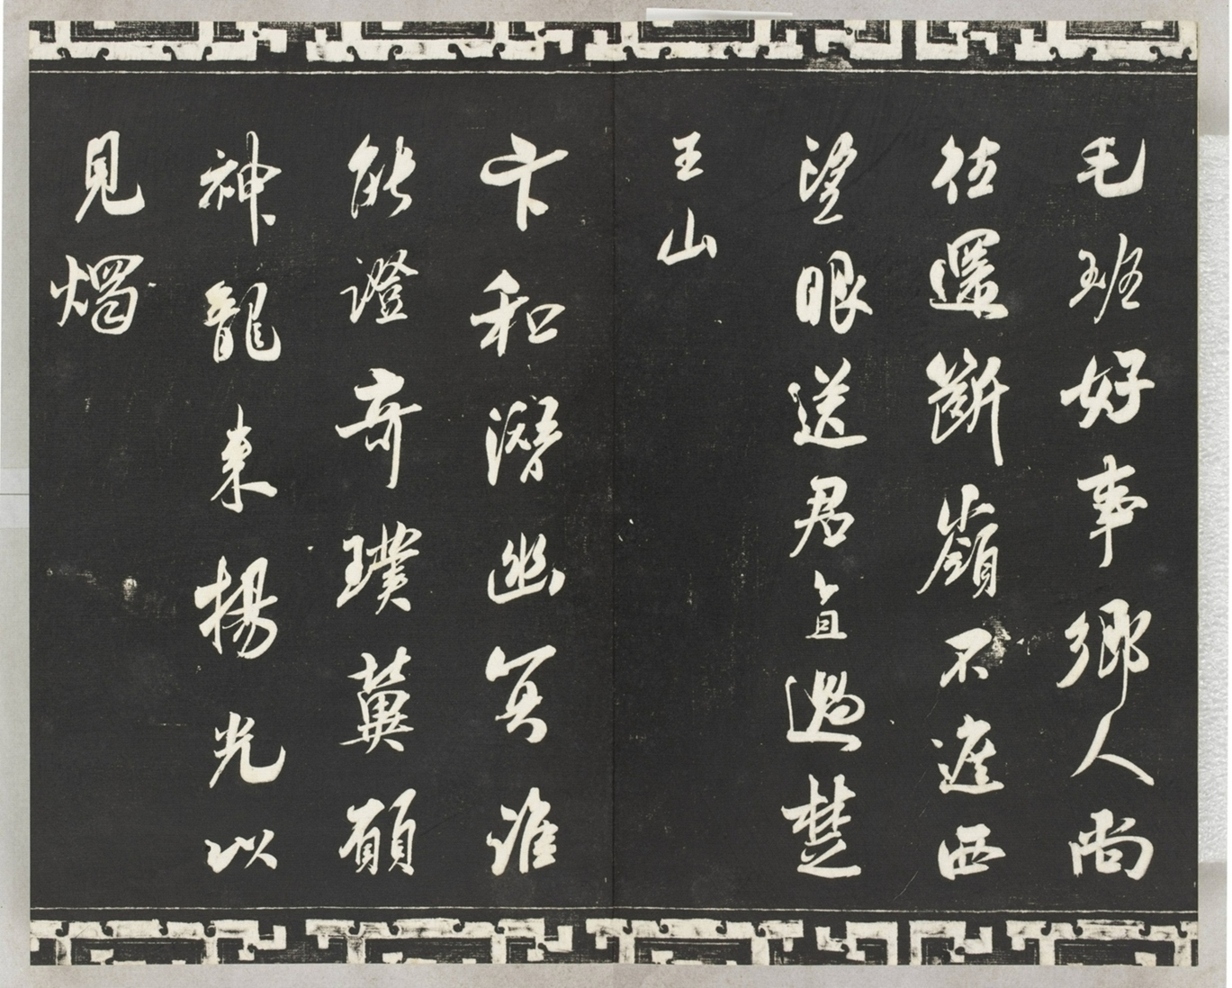 毛班好事鄉人尚
往還斷嶺不遮西
望眼送君直過楚
王山
卞和潛幽冥誰
能證奇璞冀願
神龍来揚光以
見燭